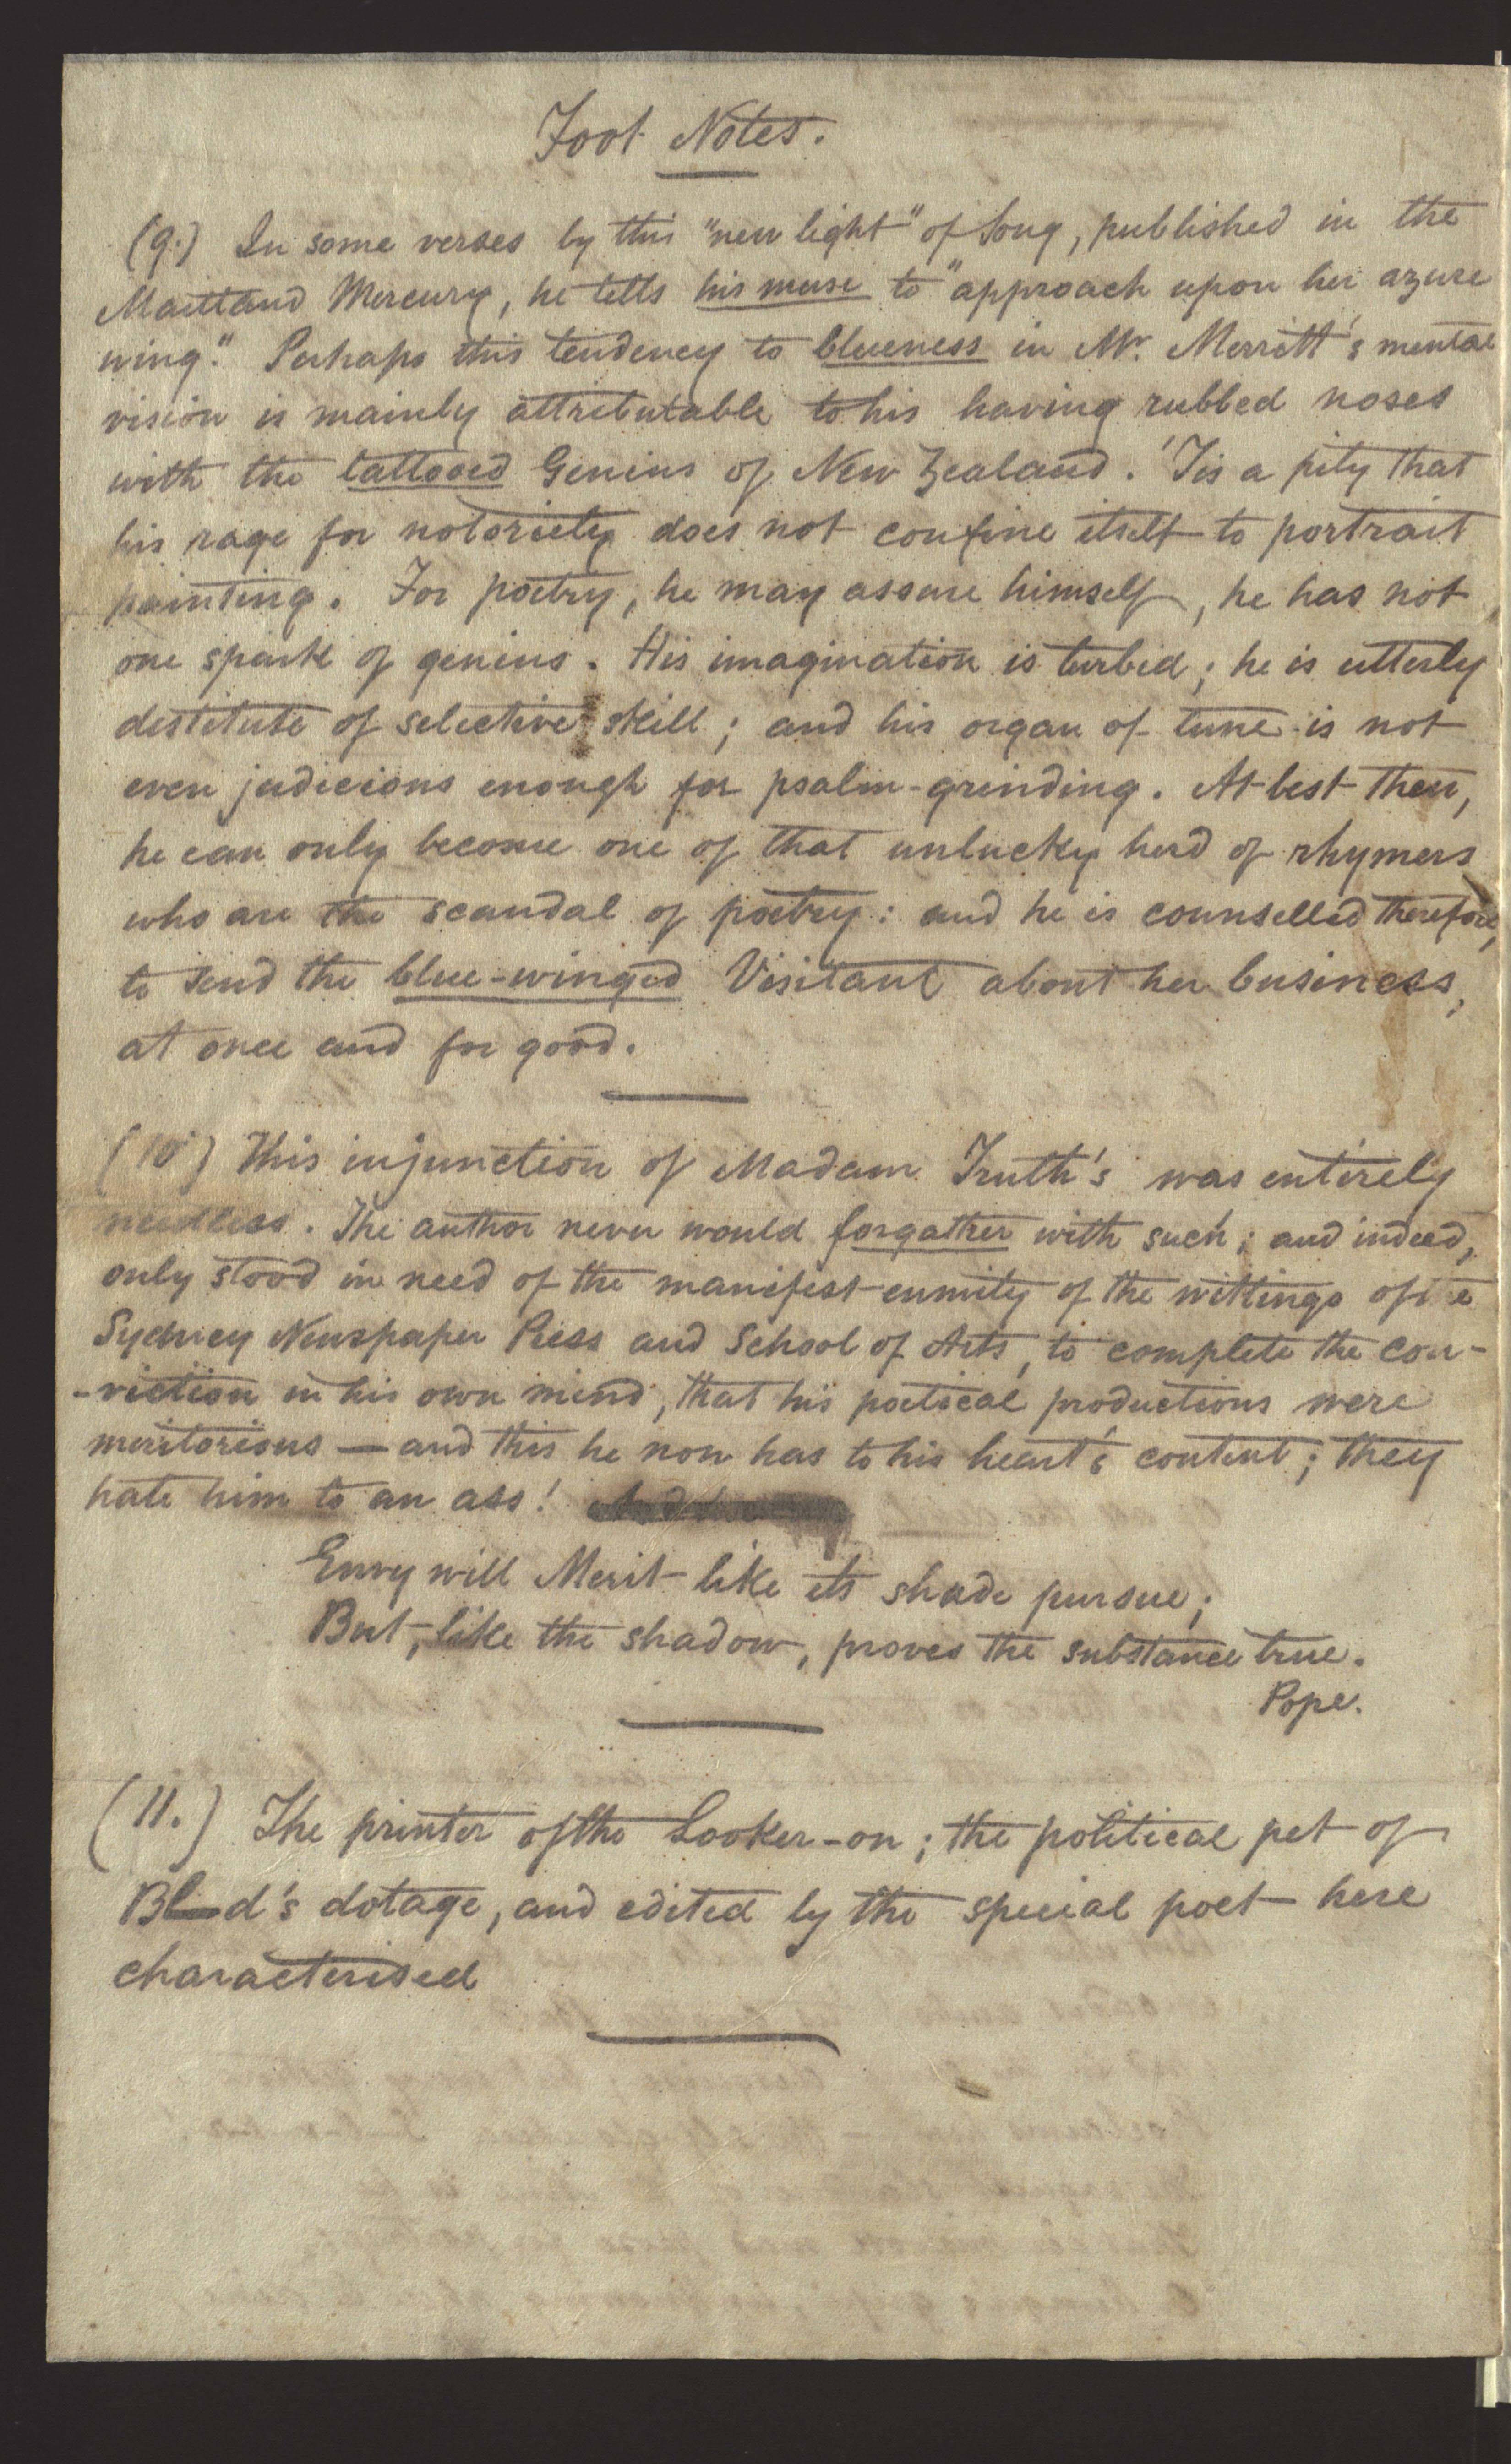 Foot Notes.
(9.) In some verses by this "new light" of Song, published in the
Maitland Mercury, he tells his muse to "approach upon her azure
wing." Perhaps this tendency to blueness in Mr. Merrett's mental
vision is mainly attributable to his having rubbed noses
with the tattooed Genius of New Zealand. 'Tis a pity that
his rage for notoriety does not confine itself to portrait
painting. For poetry, he may assure himself, he has not
one spark of genius. His imagination is turbid; he is utterly
destitute of selective skill; and his organ of tune is not
even judicious enough for psalm-grinding. At best then,
he can only become one of that unlucky herd of rhymers
who are the scandal of poetry: and he is counselled therefore,
to send the blue-winged Visitant about her business,
at once and for good.
(10) This injunction of Madam Truth's was entirely
needless. The author never would forgather with such; and indeed,
only stood in need of the manifest enmity of the wittings of the
Sydney Newspaper Press and School of Arts, to complete the con-
-viction in his own mind, that his poetical productions were
meritorious — and this he now has to his heart's content; they
hate him to an ass!
Envy will Merit like its shade pursue;
But, like the shadow, proves the substance true.
Pope.
(11.) The printer of the Looker-on; the political pet of
Bl—d's dotage, and edited by the special poet here
characterised